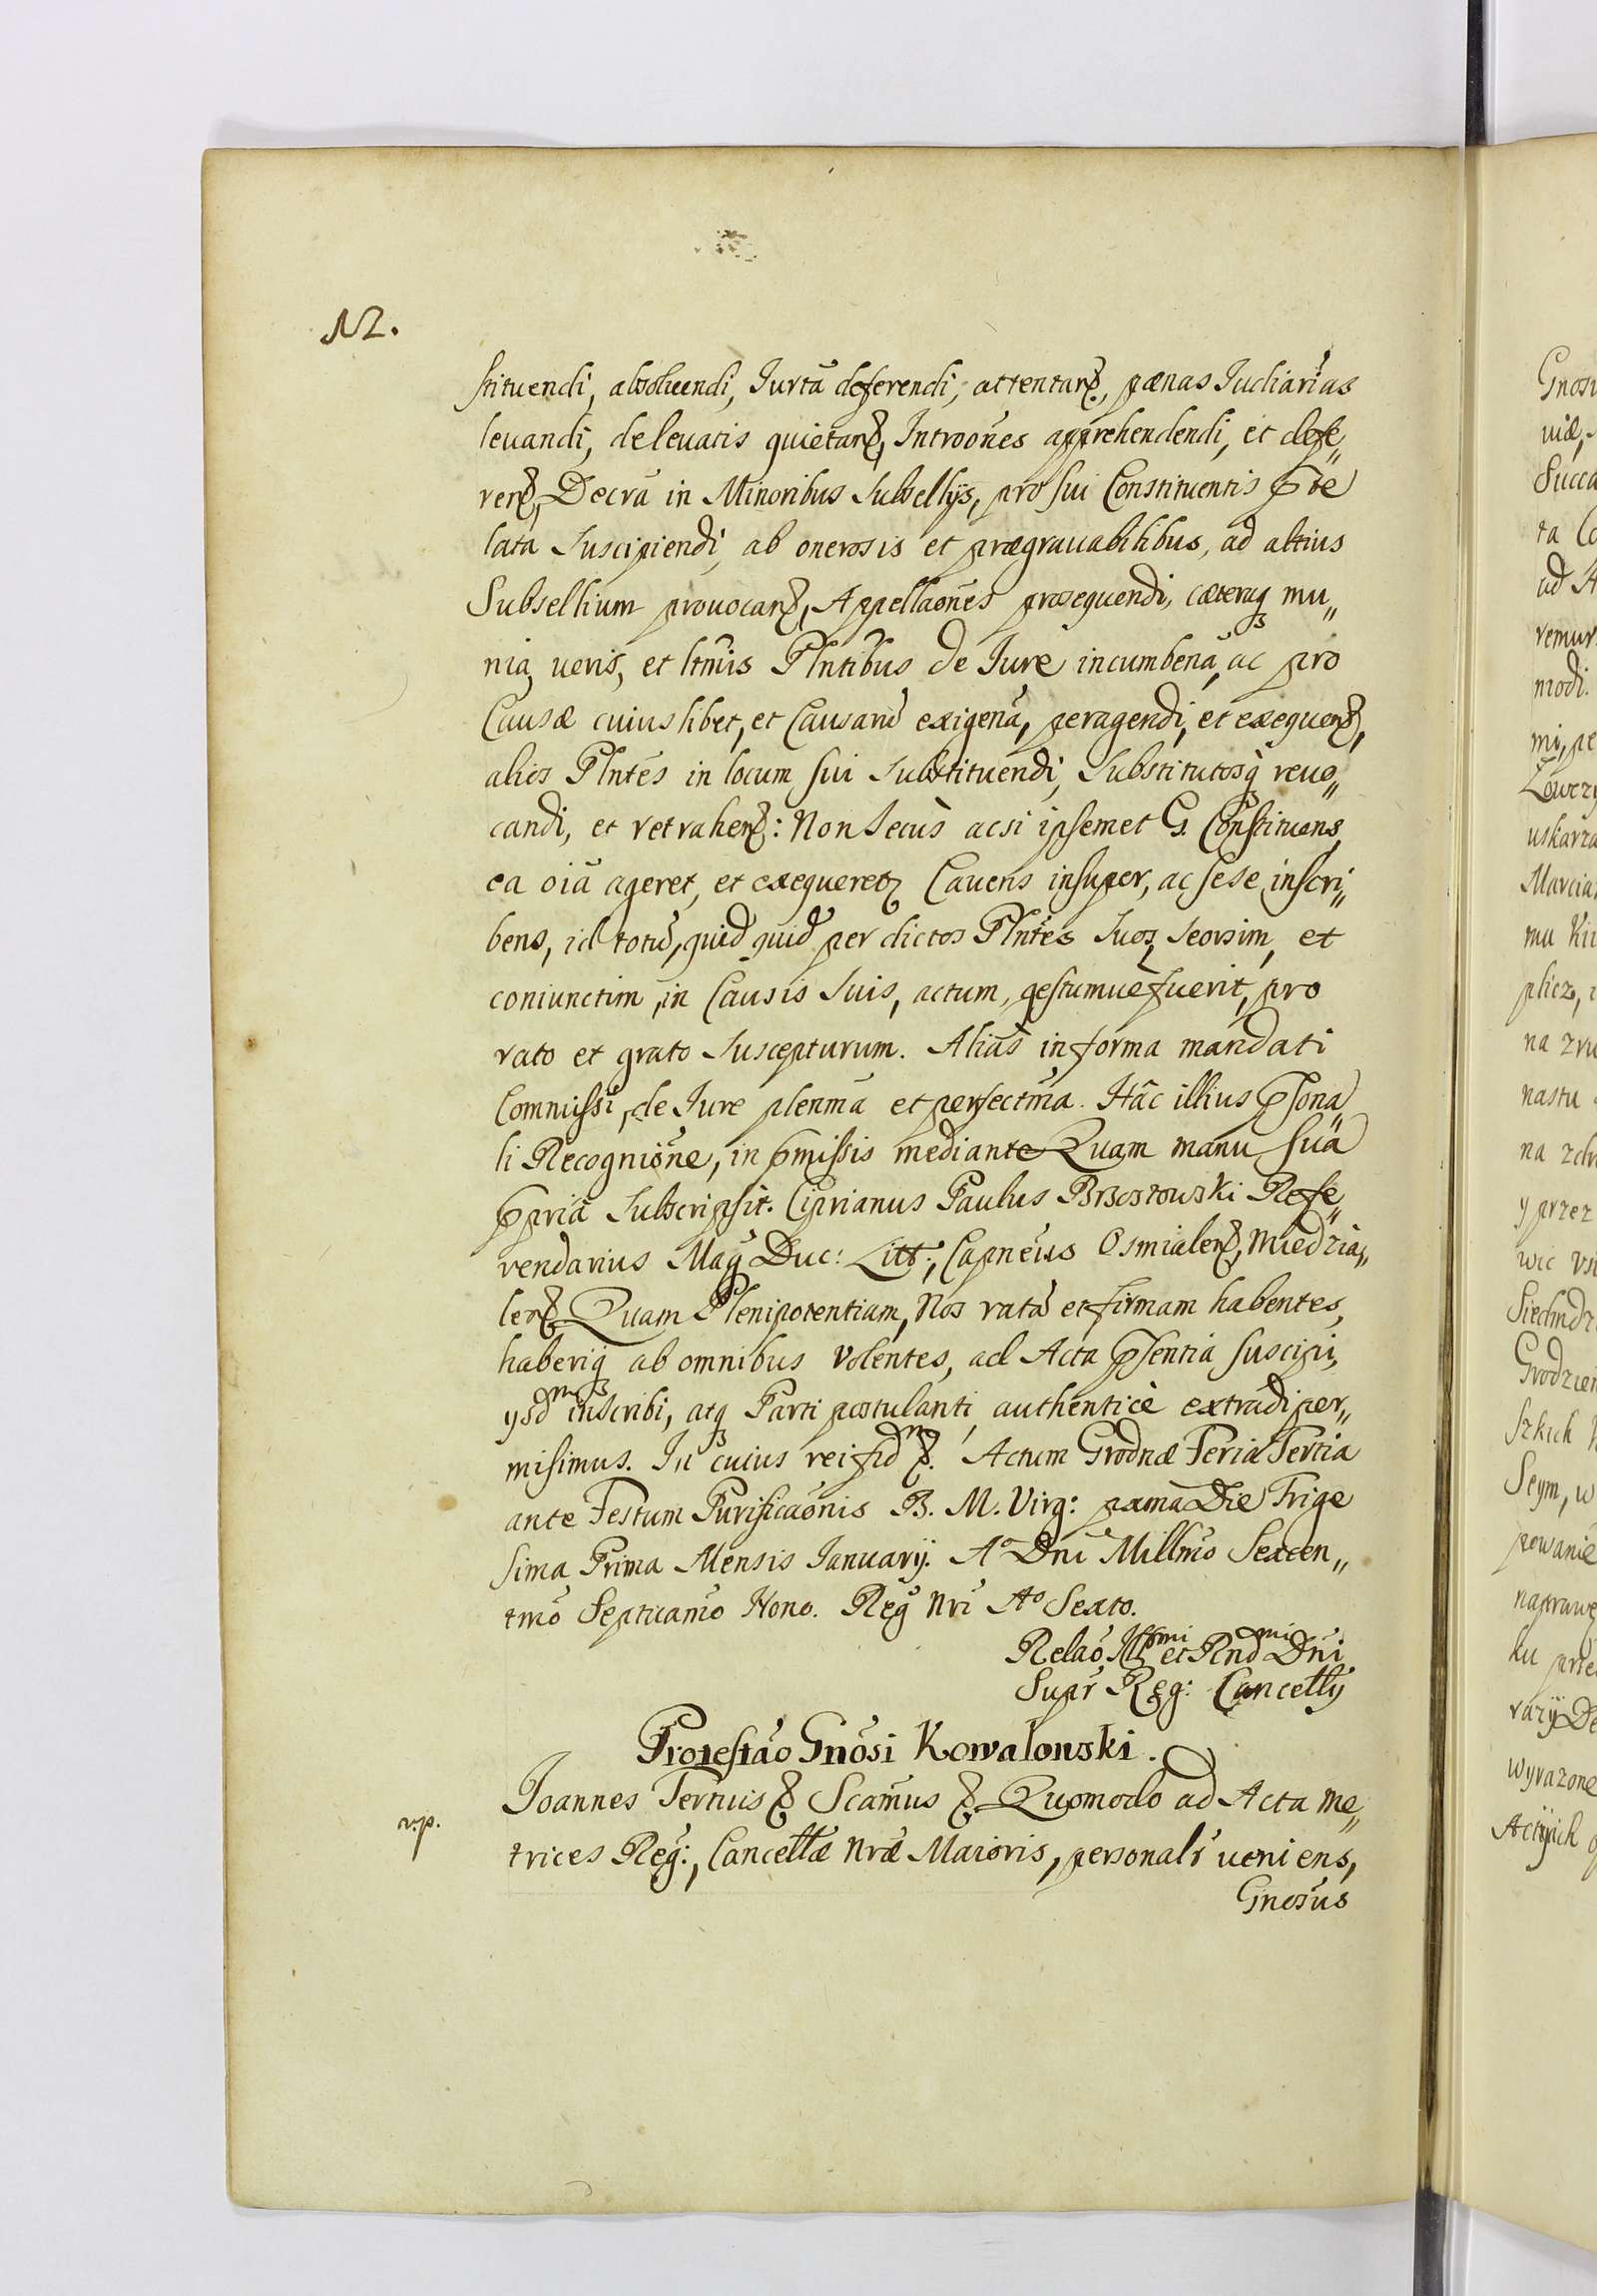 12.
stituendi, absoluendi, Iurta deferendi, attentan&, pænas Iudiarias
leuandi, de leuatis quietan&, Introões apprehendendi, et defe„
ren&, Decra in Minoribus Subsellijs, pro sui Constituentis pte
lata Suscipiendi, ab onerosis et prægrauabilibus, ad altius
Subsellium prouocan&, Appellaones prosequendi, cæteraq mu„
nia, ueris, et ltmis Plntibus de Iure incumbena, ac pro
Causæ cuiuslibet, et Causarũ exigena, peragendi, et exequen&,
alios Plntes in locum sui Substituendi, Substitutosq reuo„
candi, et retrahen&: Non Secùs acsi ipsemet G. Constituens,
ea oia ageret, et exequeretz Cauens insuper, ac sese inscri„
bens, id totũ, quid quid per dictos Plntes Suos, Seorsim, et
coniunctim, in Causis Suis, actum, gestumuè fuerit, pro
rato et grato Suscepturum. Aliàs in forma mandati
Commissi, de Iure plenma et perfectma. Hâc illius psona„
li Recognione, in pmissis mediante Quam manu suâ
ppriâ Subscripsit. Ciprianus Paulus Brzostowski Refe„
rendarius Mag Duc: Litt:, Capneus Osmialen&, Miedzia„
len& Quam Plenipotentiam, Nos ratã et firmam habentes,
haberiq ab omnibus Volentes, ad Acta psentia suscipi,
ysdm inscribi, atq Parti postulanti authenticè extradi per„
misimus. In cuius rei fidm &. Actum Grodnæ Feria Tertia
ante Festum Purificaonis B. M. Virg: pxma Die Trige
sima Prima Mensis Ianuarij. Ao Dni Millmo Sexcen„
tmo Septuamo Nono. Reg nri Ao Sexto.
Relao Illmi et Rndmi Dni
Supr Reg: Cancellij
Protestao Gnosi Kowalowski.
Ioannes Tertius & Scamus & Quomodo ad Acta Me„
r.p.
trices Reg:, Cancellæ Nræ Maioris, personalr ueniens,
Gnosus